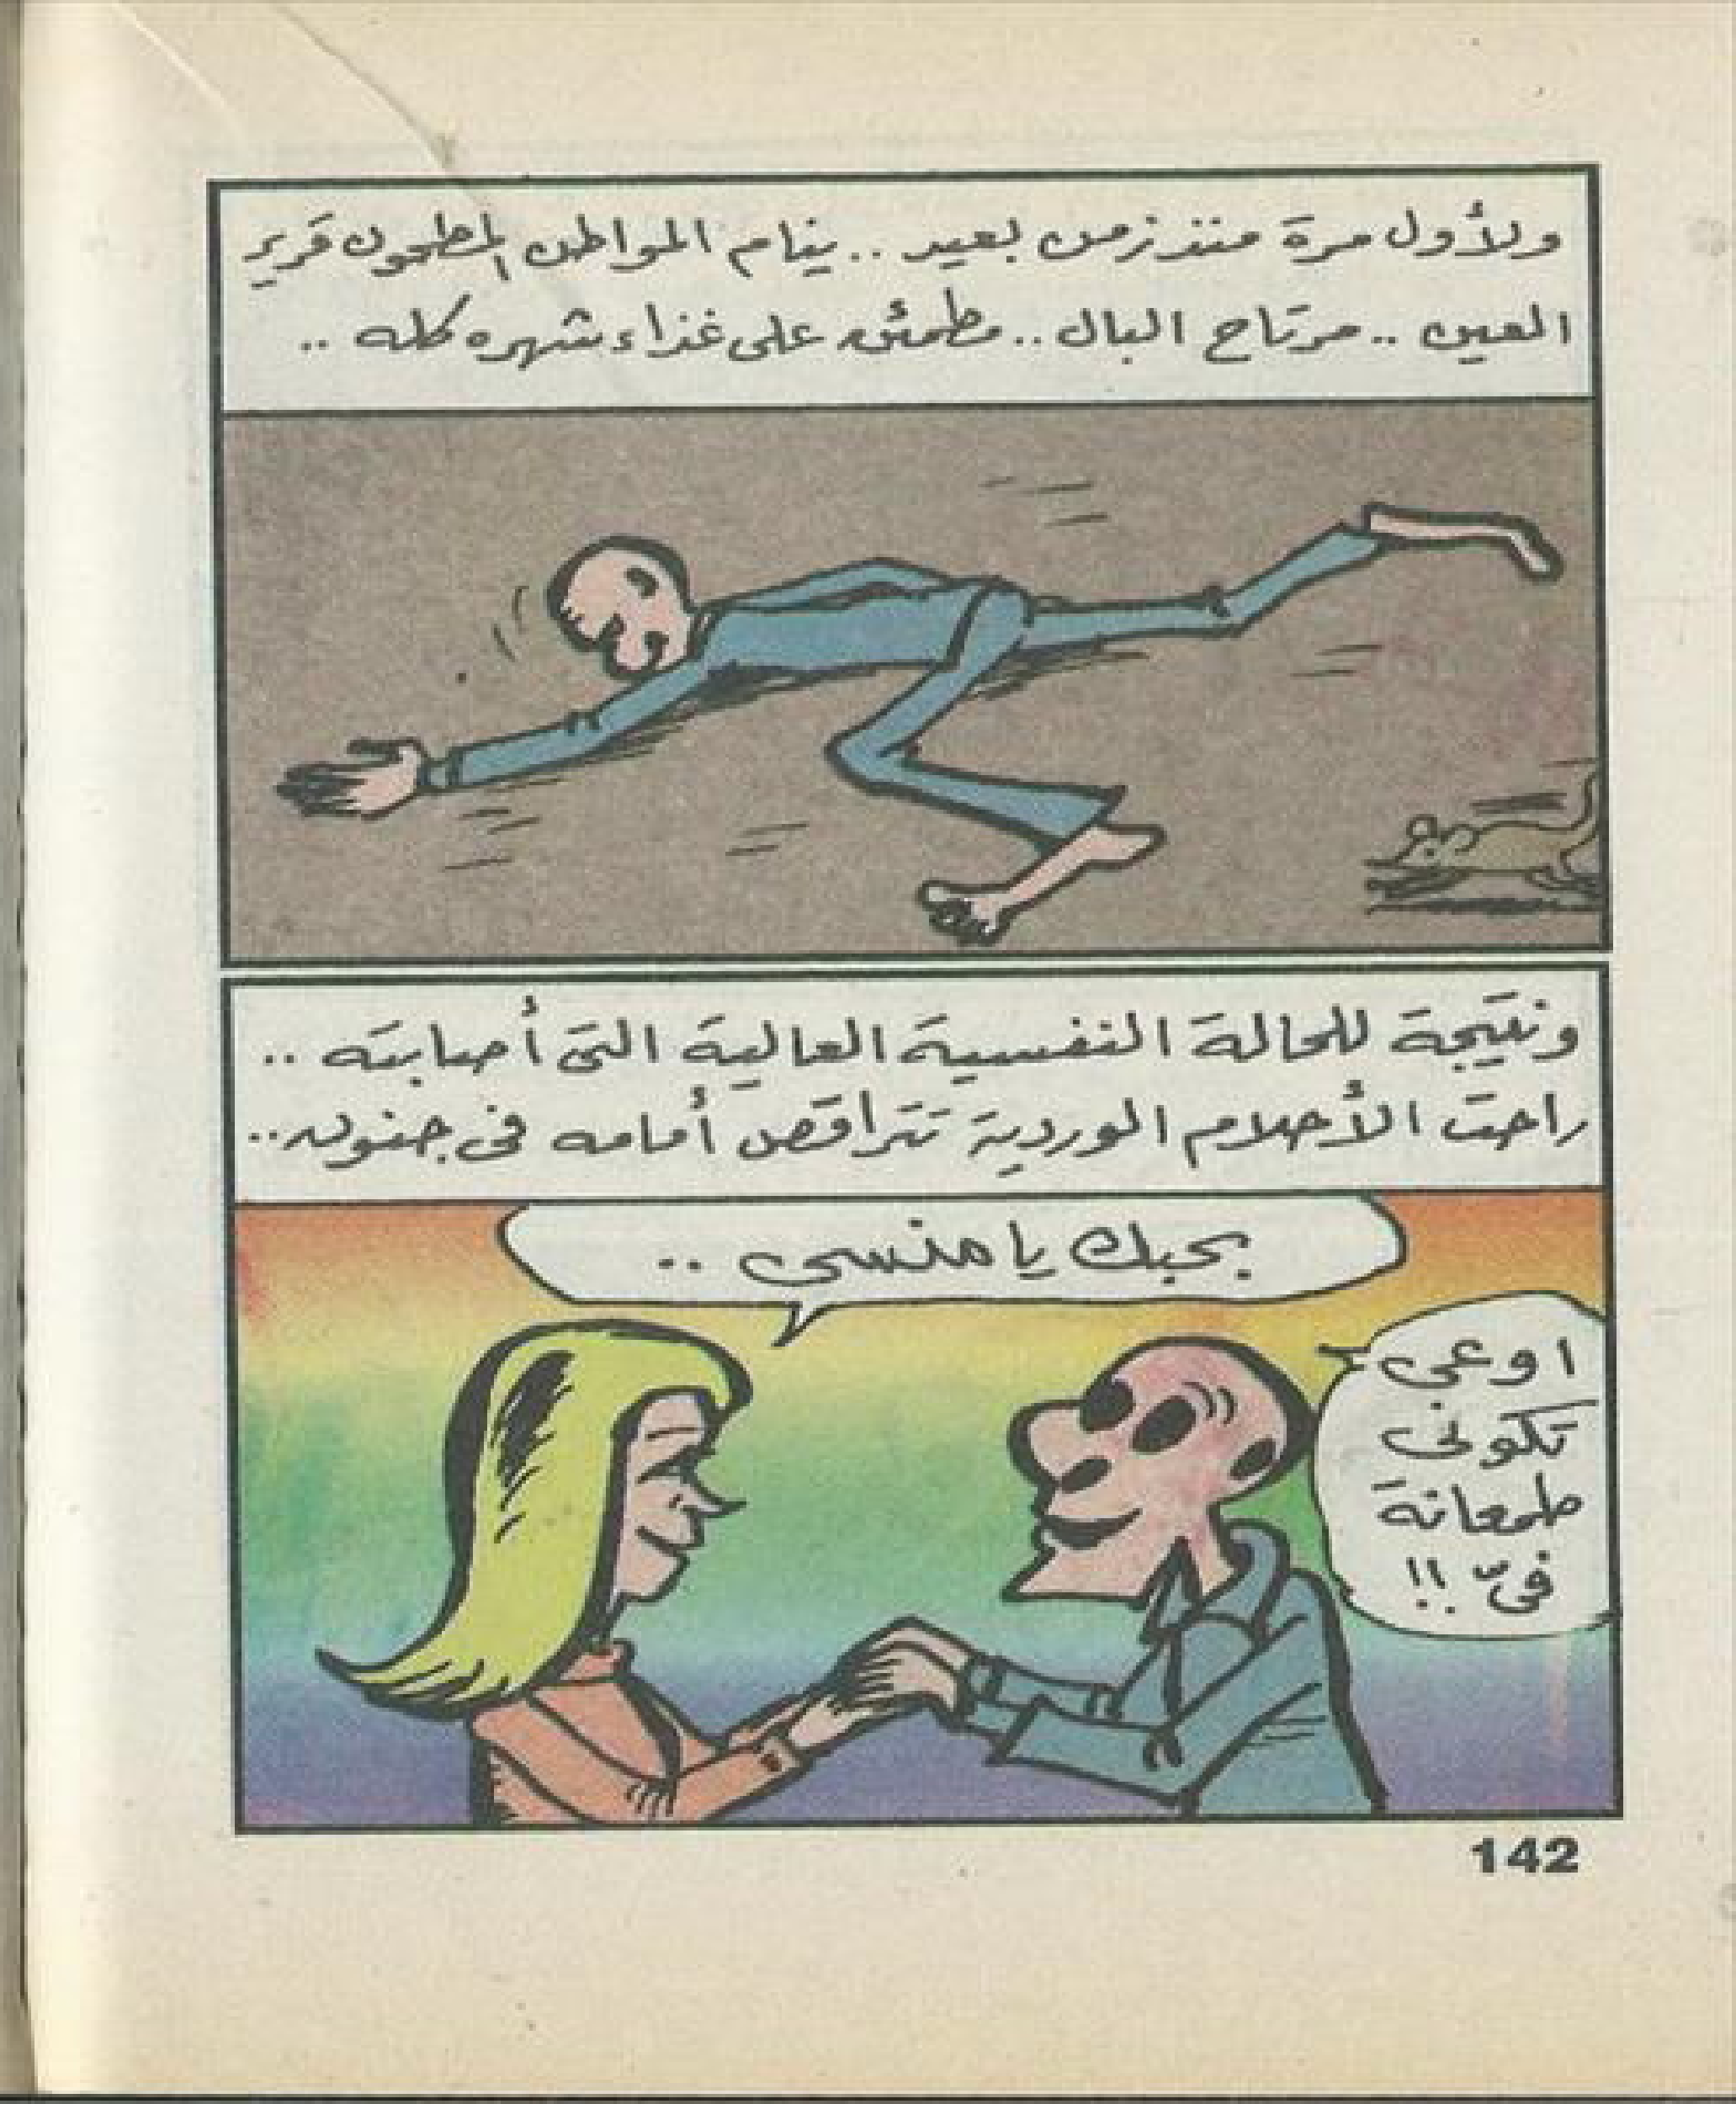 ولأول مرة منذ زمن بعيد .. ينام المواطن المطحون قرير
العين .. مرتاح البال .. مطمئن على غذاء شهره كله ..
ونتيجة للحالة النفسية العالية التى أصابته ..
راحت الأحلام الوردية تتراقص أمامه فى جنون ..
بحبك يا منسى ..
اوعى
تكونى
طمعانة
فىّ !!
142